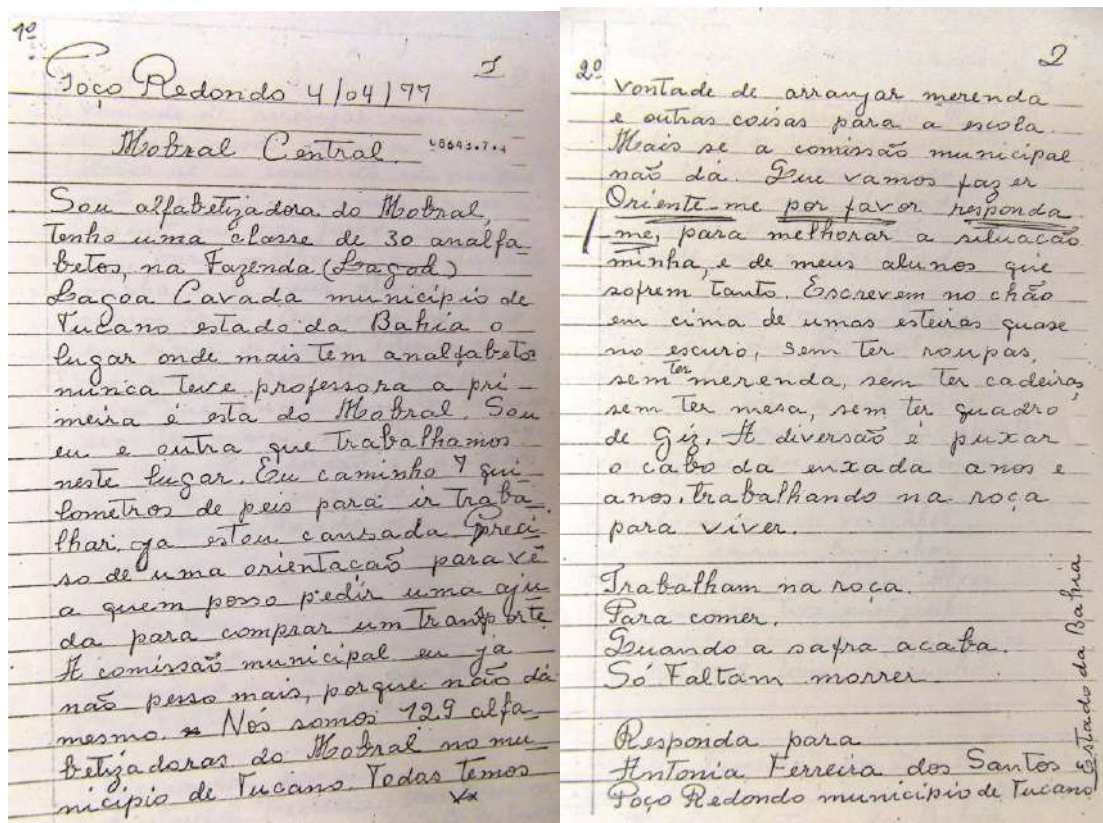 1º
1
Poço Redondo 4/04/77
Mobral Central.
Sou alfabetizadora do Mobral,
Tenho uma classe de 30 analfa-
betos, na Fazenda (Lagoa)
Lagoa Cavada município de
Tucano estado da Bahia o
lugar onde mais tem analfabetos
nunca teve professora a pri-
meira é esta do Mobral. Sou
eu e outra que trabalhamos
neste lugar. Eu caminho 7 qui-
lometros de peis para ir traba-
lhar, ja estou cansada preci-
so de uma orientação para vê
a quem posso pedir uma aju
da para comprar um transporte
A comissão municipal eu ja
não pesso mais, porque não dá
mesmo. Nós somos 129 alfa-
betizadoras do Mobral no mu-
nicipio de Tucano. Todas temos
2º
2
vontade de arranjar merenda
e outras coisas para a escola.
Mais se a comissão municipal
não dá. Que vamos fazer
Oriente-me por favor responda
me, para melhorar a situação
minha, e de meus alunos que
sofrem tanto. Escrevem no chão
em cima de umas esteiras quase
no escuro, sem ter roupas,
sem ter merenda, sem ter cadeiras,
sem ter mesa, sem ter quadro
de giz. A diversão é puxar
o cabo da enxada anos e
anos, trabalhando na roça
para viver.
Trabalham na roça.
Para comer.
Quando a safra acaba.
Só Faltam morrer
Responda para
Antonia Ferreira dos Santos
Poço Redondo município de Tucano
Estado da Bahia